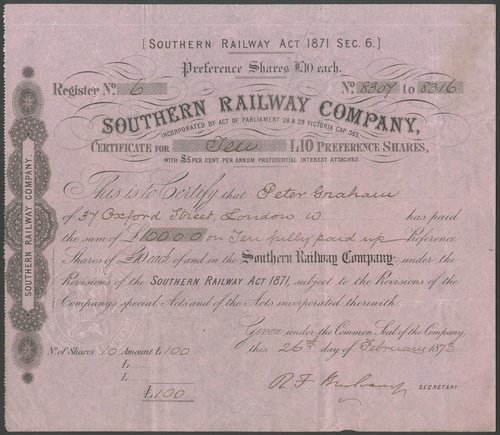 (SOUTHERN RAILWAY ACT 1871 SEC. 6.)
Preference Shares £10 each.
Register No. 6
No. 8307 to 8316
SOUTHERN RAILWAY COMPANY,
INCORPORATED BY ACT OF PARLIAMENT 28 & 29 VICTORIA CAP 363.
CERTIFICATE FOR Ten £10 PREFERENCE SHARES,
WITH £5 PER CENT PER ANNUM PREFERENTIAL INTEREST ATTACHED.
This is to Certify that Peter Graham
of 37 Oxford Street, London W has paid
the sum of £100.0.0 on Ten fully paid up Preference
Shares of £10 each of and in the Southern Railway Company under the
Provisions of the SOUTHERN RAILWAY ACT 1871, subject to the Provisions of the
Company's special Acts and of the Acts incorporated therewith.
Given under the Common Seal of the Company
this 26th day of February 1873
No. of Shares 10 Amount £100
£
£
£100
R. F.
SECRETARY
SOUTHERN RAILWAY COMPANY.